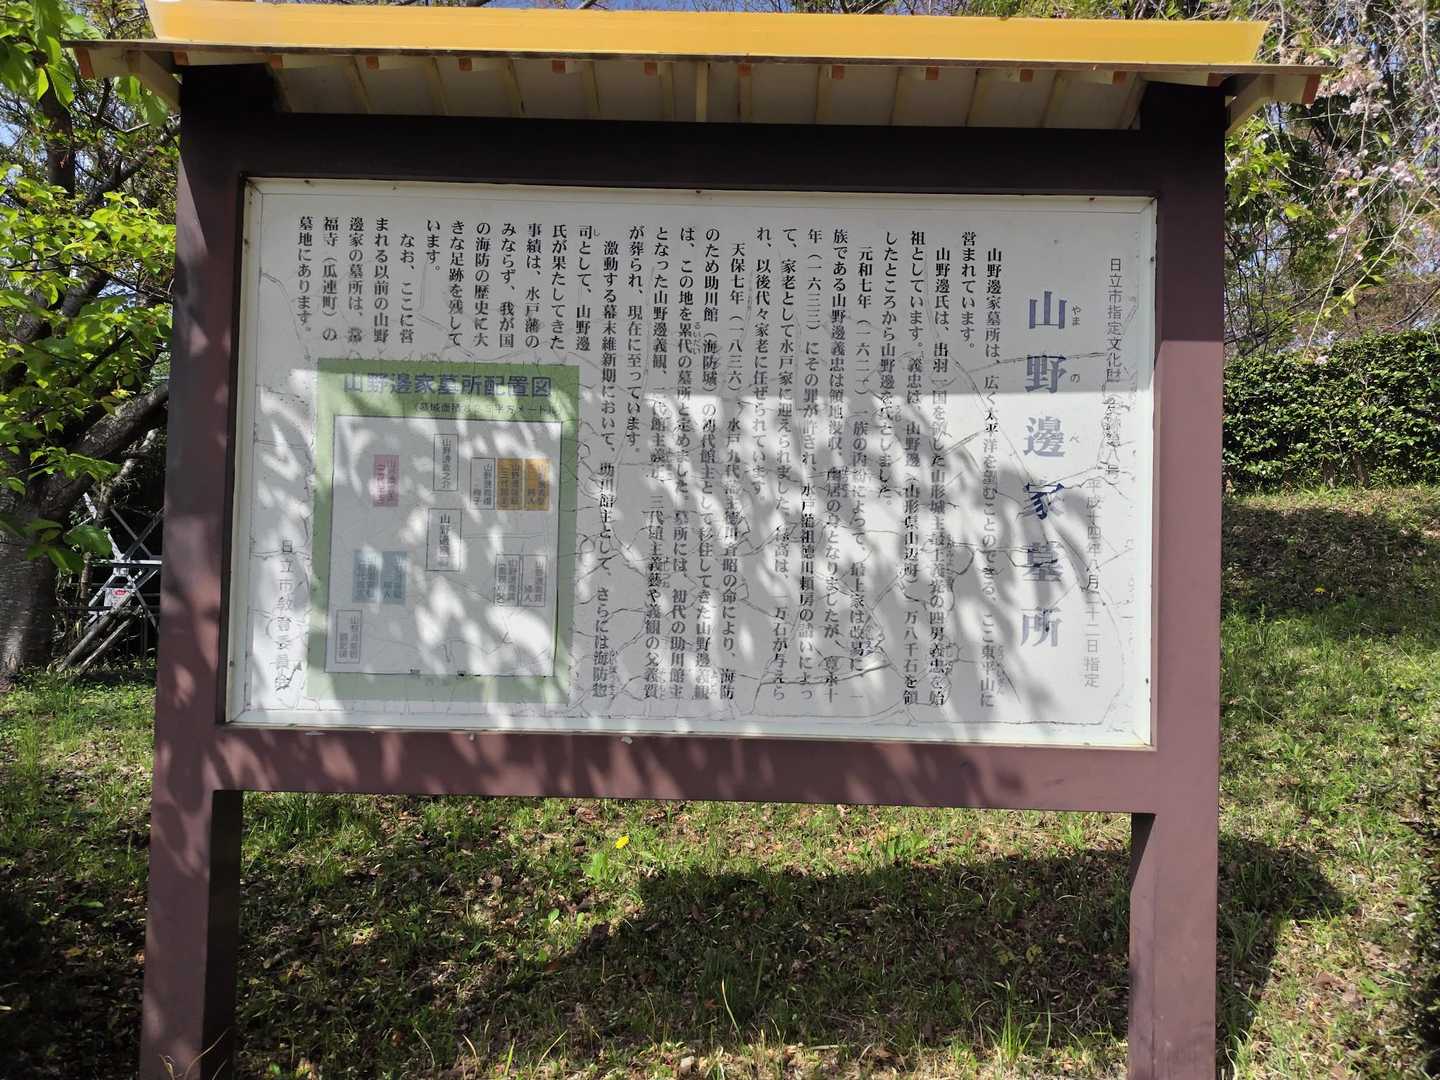 日立市指定文化財
平成十四年八月二十二日指定
山野邊家墓所
やまのべ
山野邊家墓所は、広く太平洋を望むことのできる、ここ東平山に
営まれています。
山野邊氏は、出羽一国を領した山形城主最上義光の四男義忠を始
祖としています。義忠は、山野邊（山形県山辺町）一万八千石を領
したところから山野邊を氏としました。
元和七年（一六二一）一族の内紛によって、最上家は改易に、一
族である山野邊義忠は領地没収、の身となりましたが、寛永十
年（一六三三）にその罪が許され、水戸藩祖徳川頼房の請いによっ
て、家老として水戸家に迎えられました。禄高は、一万石が与えら
れ、以後代々家老に任ぜられています。
天保七年（一八三六）、水戸九代藩主徳川斉昭の命により、海防
のため助川館（海防城）の初代館主として移住してきた山野邊義観
は、この地を累代の墓所と定めました。墓所には、初代の助川館主
るいだい
となった山野邊義観、二代館主義正、三代館主義藝や義観の父義質
が葬られ、現在に至っています。
激動する幕末維新期において、助川館主として、さらには海防惣
司として、山野邊
し
氏が果たしてきた
事績は、水戸藩の
みならず、我が国
の海防の歴史に大
きな足跡を残して
います。
なお、ここに営
まれる以前の山野
邊家の墓所は、常
福寺（瓜連町）の
墓地にあります。
日立市教育委員会
山野邊家墓所配置図
山野邊義之介